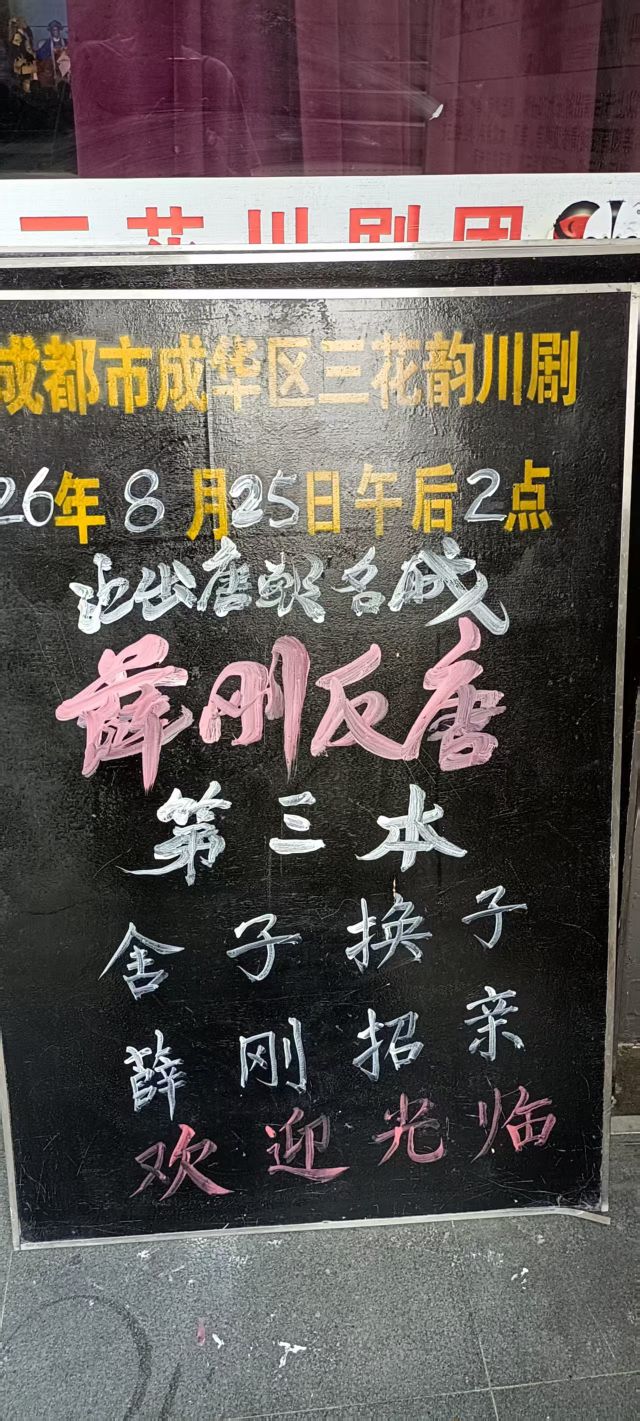 三花川剧团
成都市成华区三花韵川剧
26年8月25日午后2点
演出唐朝名戏
薛刚反唐
第三本
舍子换子
薛刚招亲
欢迎光临